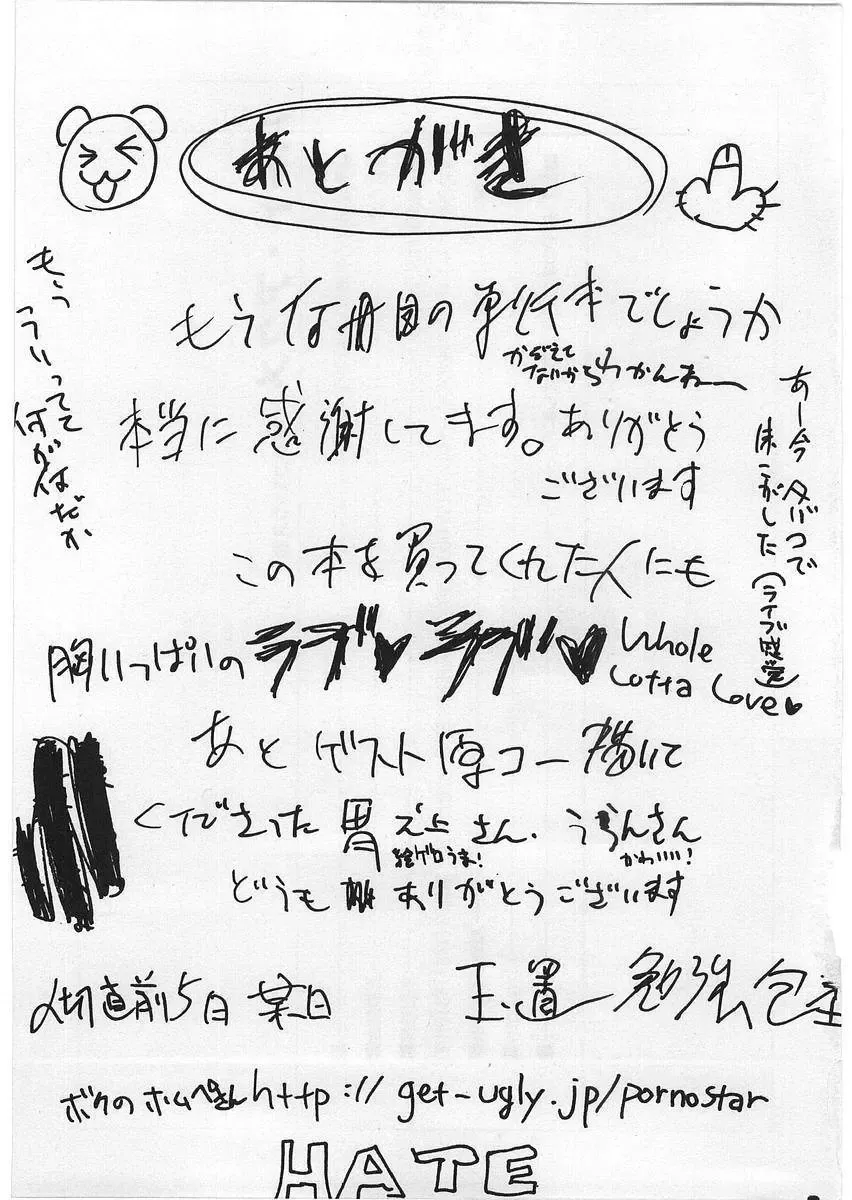 あとがき
もう何冊目の単行本でしょうか
かぞえて
ないからわかんねー
本当に感謝してます。ありがとう
ございます
この本を買ってくれた人にも
胸いっぱいのラブ♥ラブ♥ Whole
Lotta Love♥
あとゲスト原コー描いて
くださった胃之上さん、うらんさん
絵ゲロうま!
かわいい!
どうもありがとうございます
〆切直前5日 某日
玉置勉強
ボクのホムペさん http://get-ugly.jp/pornostar
HATE
もう
つういってて
何が何だか
あー今タバコで
床こがした(ライブ感覚)